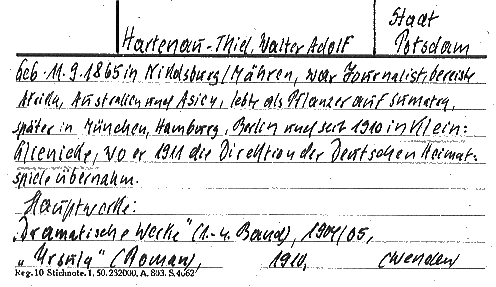 Stadt
Hartenau-Thiel, Walter Adolf Potsdam
Geb. 11.9.1865 in Nikolsburg/Mähren, war Journalist, bereiste
Afrika, Australien und Asien, lebte als Pflanzer auf Sumatra,
später in München, Hamburg, Berlin und seit 1910 in Klein-
Glienicke, wo er 1911 die Direktion der Deutschen Heimat-
spiele übernahm.
Hauptwerke:
„Dramatische Werke" (1.-4. Band), 1904/05,
„Ursula" (Roman), 1910, wenden
Reg. 10 Stichnote. 1, 50. 232000. A. 803. S. 4062